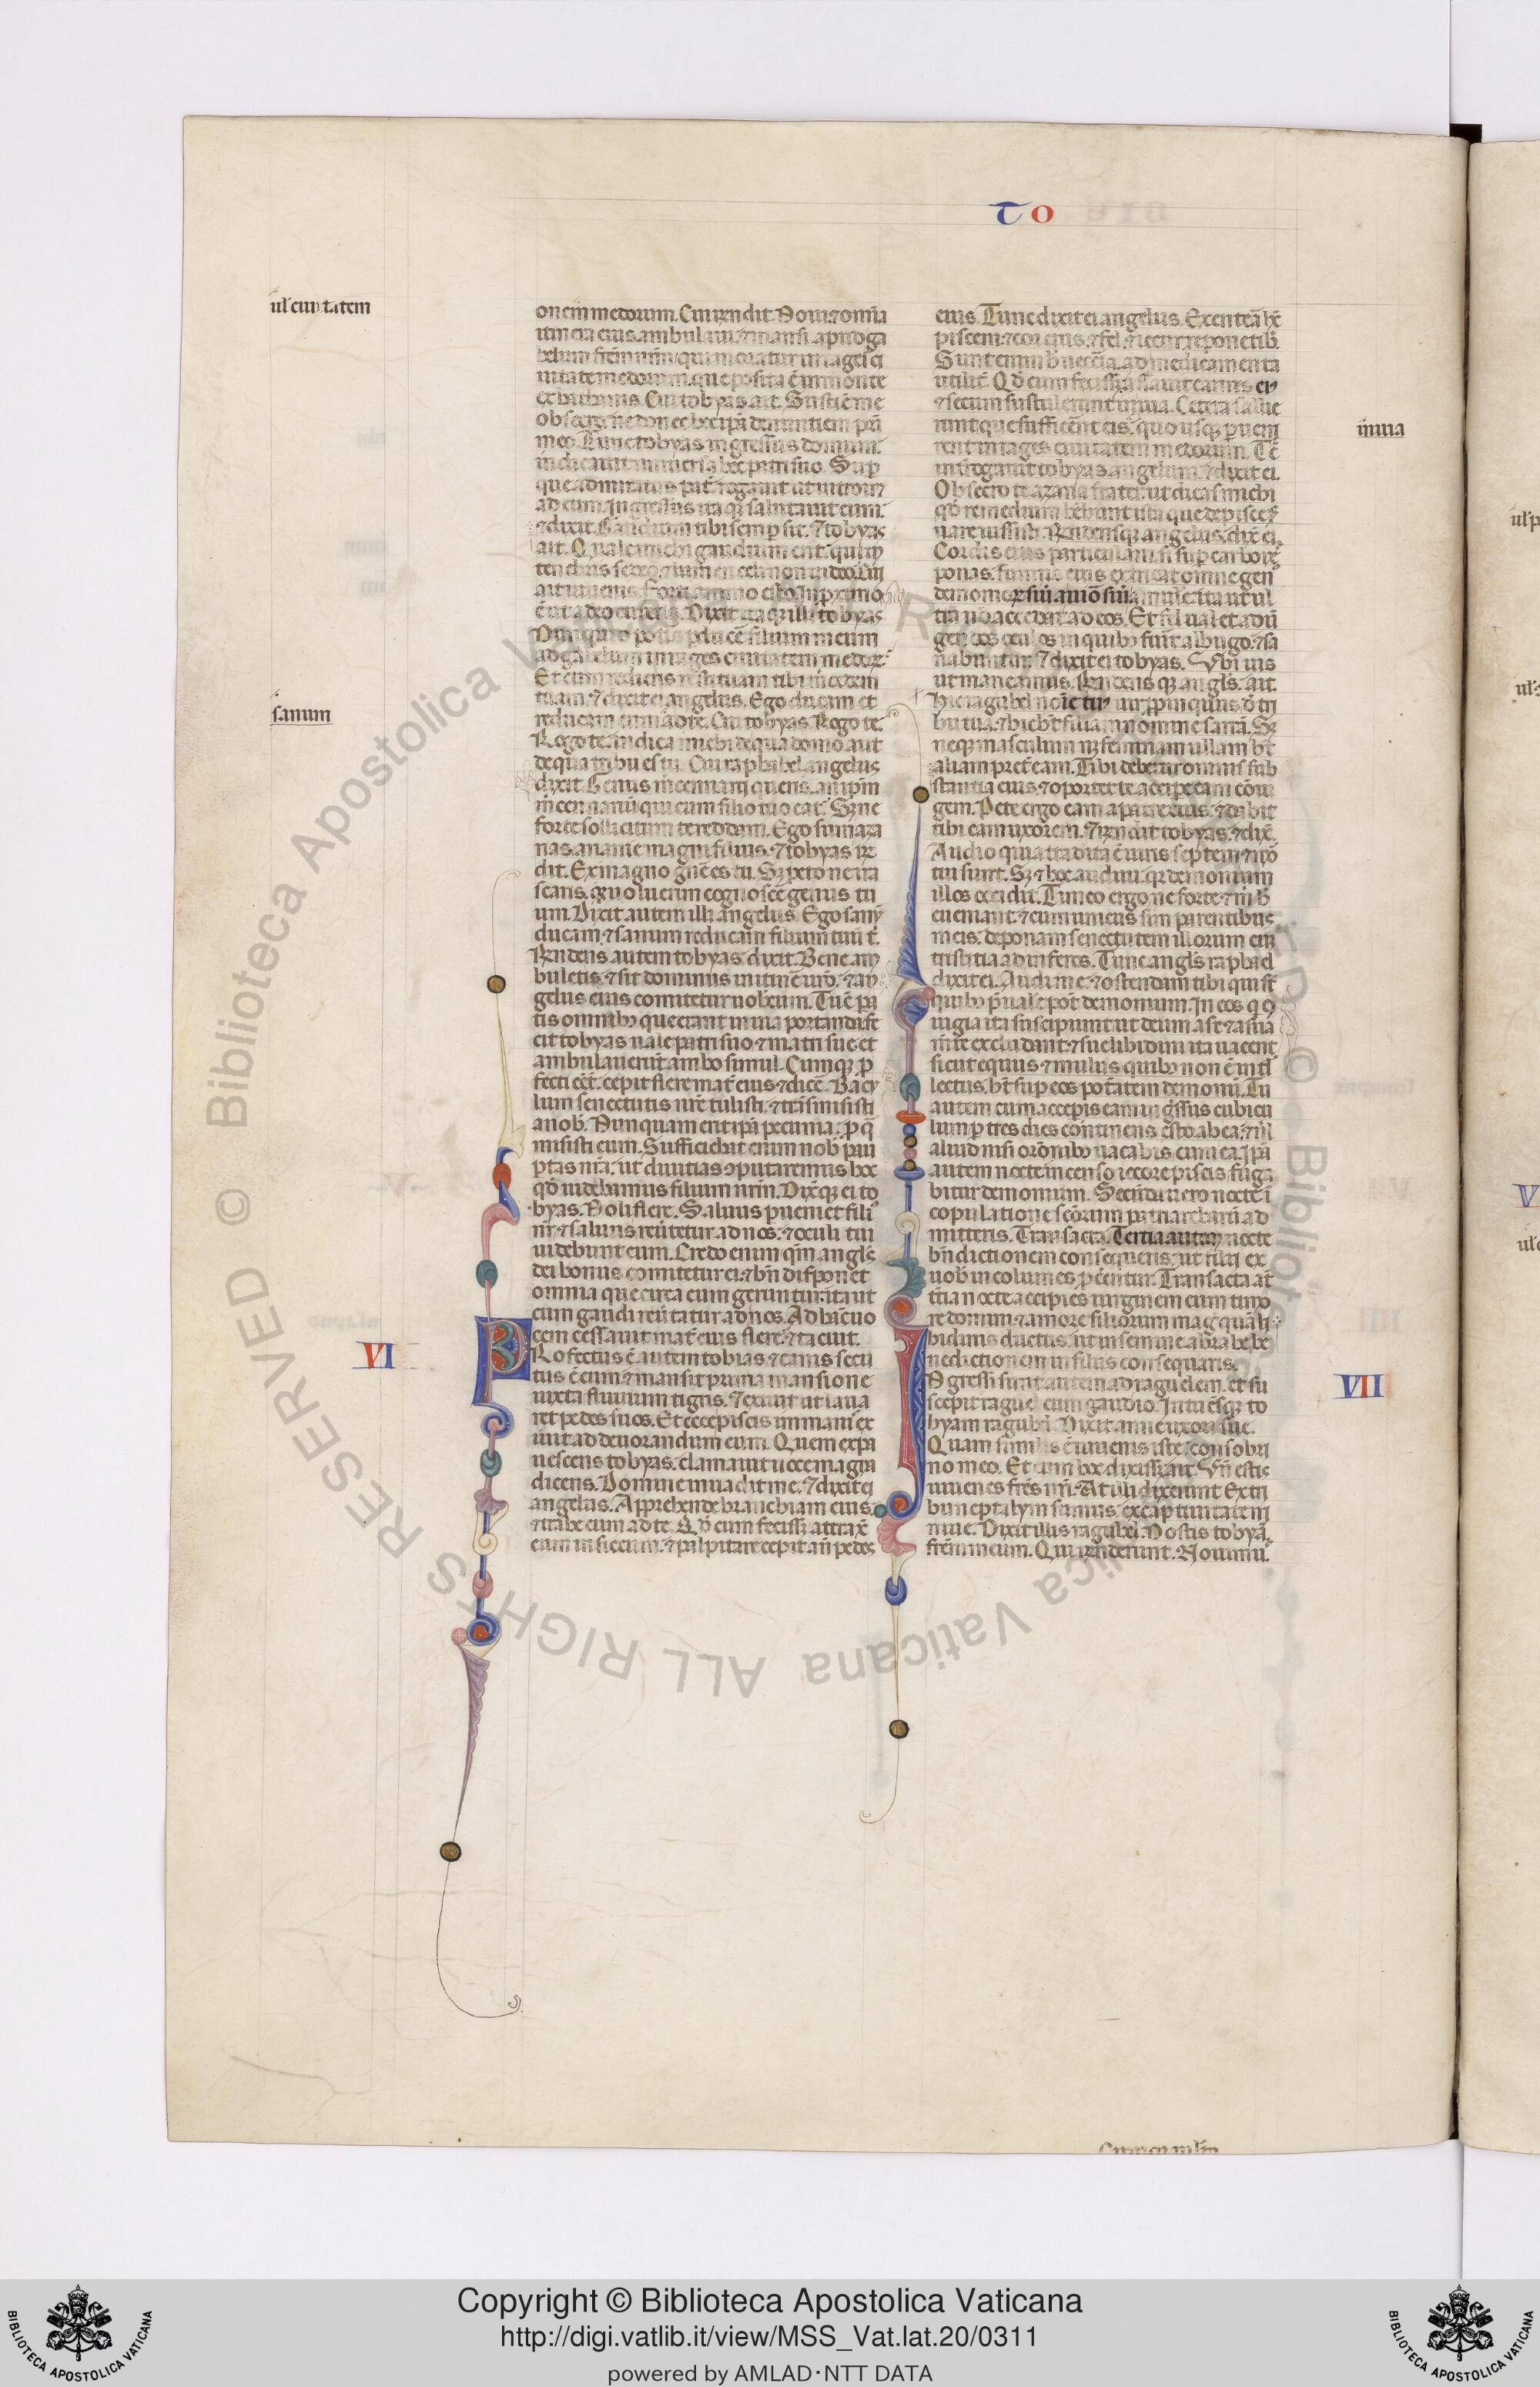 TO
ul' ciuitatem
onem medorum. Cui rn̄dit. Noui ⁊ omīa
itinera eius ambulaui. ⁊ mansi apud ga
belum frēm nr̄m qui moratur in rages ci
uitate medorum. que posita ē in monte
ecbathanis. Cui tobyas ait. Sustiē me
obsecro. ne donec hec ip̄a denuntiem pr̄i
meo. Tunc tobyas ingressus domum.
indicauit uniuersa hec patri suo. Sup̄
que admiratus pat̄. rogauit ut introir̄
ad eum. Ingressus itaq; salutauit eum.
⁊ dixit. Gaudium tibi semp̄ sit. ⁊ tobyas
ait. Quale michi gaudium erit. qui in
tenebris sedeo. ⁊ lumen celi non uideo. Cui
ait iuuenis. Forti animo esto. In proximo
ē ut a deo cureris. Dixit itaq; illi tobyas
Nunquid potis pducē filium meum
ad gabelum in rages ciuitatem medoꝝ.
Et cum redieris restituam tibi mercedem
tuam. ⁊ dixit ei angelus. Ego ducam et
reducam eum ad te. Cui tobyas. Rogo te.
Rogo te. indica michi de qua domo aut
de qua tribu es tu. Cui raphahel angelus
dixit. Genus mercennarij queris. an ip̄m
m̄cennariū qui cum filio tuo eat. Sꝫ ne
forte sollicitum te reddam. Ego sum aza
rias ananie magni filius. ⁊ tobyas rn̄
dit. Ex magno gn̄e es tu. Sꝫ peto ne ira
scaris. quo luerim cognoscē genus tu
um. Dixit autem illi angelus. Ego sanū
ducam. ⁊ sanum reducam filium tuū t̄.
Rn̄dens autem tobyas dixit. Bene am
buletis. ⁊ sit dominus in itin̄e ur̄o. ⁊ an
gelus eius comitetur uobcum. Tūc pa
tis omnibꝰ que erant in uia portandi. fe
cit tobyas uale patri suo. ⁊ matri sue. et
ambulauerūt ambo simul. Cumq; p
fecti eēt. cepit flere mat̄ eius ⁊ dicē. Bacu
lum senectutis nr̄e tulisti. ⁊ trāsmisisti
a nob̄. Nunquam erit ip̄a pecunia. p̱ q̄
misisti eum. Sufficiebat enim nob̄ pau
ꝑtas nr̄a. ut diuitias ꝯputaremus hoc
qd̄ uidebamus filium nr̄m. Dixitq; ei to
byas. Noli flere. Saluus ꝑueniet fili
nr̄. ⁊ saluus reūtetur ad nos. ⁊ oculi tui
uidebunt eum. Credo enim qm̄ angls̄
dei bonus comitetur ei. ⁊ bn̄ disponet
omnia que circa eum geruntur. ita ut
cum gaudi reūtatur ad nos. Ad hāc uo
cem cessauit mat̄ eius flere. ⁊ tacuit.
PRofectus ē autem tobias. ⁊ canis secu
tus ē eum. ⁊ mansit prima mansione
iuxta fluuium tigris. ⁊ exiuit ut laua
ret pedes suos. Et ecce piscis immanis ex
iuit ad deuorandum eum. Quem expa
uescens tobyas. clamauit uoce magna
dicens. Domine inuadit me. ⁊ dixit ei
angelus. Apprehende branchiam eius.
⁊ trahe eum ad te. Qd̄ cum fecissꝫ attrax̄
eum in siccum. ⁊ palpitare cepit an̄ pedes
sanum
VI
eius. Tunc dixit ei angelus. Exentera hc̄
piscem. ⁊ cor eius. ⁊ fel. ⁊ iecur repone tib̄.
Sunt enim h̄ necc̄ia. ad medicamenta
utilit̄. Qd̄ cum fecissꝫ assauit carnes eiꝰ
⁊ secum sustulerunt in uia. Cetera salie
runt que sufficēnt eis. quo usq; ꝑueni
rent in rages ciuitatem medorum. Tc̄
int̄rogauit tobyas angelum. ⁊ dixit ei.
Obsecro te azaria frater. ut dicas michi
qd̄ remedium hēbunt ista que de pisce ſ
uare iussisti. Rn̄densq; angelus. dix̄ ei.
Cordis eius particulam. si sup̄ carbonꝫ
ponas. fumus eius extricat omne gen
demonioꝝ siu̇ a uiō siu̇ a muliē. ita ut ul
tra nō accedat ad eos. Et fel ualet ad ū
gendos oculos in quibꝰ fuūt albugo. ⁊ sa
nabuntur. ⁊ dixit ei tobyas. Vbi uis
ut maneamus. Rn̄densq; angls̄. ait.
Hic ē raguhel noīe tuꝰ uir ꝓpinquus. de tri
bu tua. ⁊ hic h̄t filiam nomine sarrā. Sꝫ
neq; masculum neꝗ feminam ullam h̄t
aliam pret̄ eam. Tibi debetur omnis sub
stantia eius. ⁊ oportet te accipe eam cōiu
gem. Pete ergo eam a patre eius. ⁊ dabit
tibi eam uxorem. ⁊ rn̄dit tobyas. ⁊ dix̄.
Audio quia tradita ē uiris septem ⁊ mō
tui sunt. Sꝫ ⁊ hoc audiui. qr̄ demonium
illos occidit. Timeo ergo ne forte ⁊ m̄ h̄
eueniant. ⁊ cum unicus sim parentibus
meis. deponam senectutem illorum cū
tristitia ad inferos. Tunc angls̄ raphael
dixit ei. Audi me. ⁊ ostendam tibi qui st̄
quibꝰ p̄ualē pot̄ demonium. In eos q̄ ꝯ
iugia ita suscipiunt ut deum a se. ⁊ a sua
m̄te excludant. ⁊ sue libidini ita uacent
sicut equus ⁊ mulus quibꝰ non ē intl̄
lectus. h̄t sup̄ eos potātem demoniū. Tu
autem cum accepis eam. ingressus cubicu
lum ꝑ tres dies continens esto ab ea. ⁊ nl̄
aliud nisi orōnibꝰ uacabis cum ea. Ip̄a
autem nocte incenso iecore piscis fuga
bitur demonium. Secūda uero nocte ī
copulatione scōrum patriarcharū ad
mitteris. Transacta. Tertia autem nocte
bn̄dictionem consequeris. ut filij ex
uob̄ incolumes ꝓcēntur. Transacta aū
t̄tia nocte accipies uirginem cum timo
re domini. ⁊ amore filiorum magꝰ quā li
bidinis ductus. ut in semine abrahe be
nedictionem in filiis consequaris.
INgressi sunt autem ad raguelem. et su
scepit raguel eum gaudio. Intuēsq; to
byam raguhel. Dixit anne uxori sue.
Quam similis ē iuuenis iste. consobri
no meo. Et cum hoc dixissꝫ ait. Vn̄ estis
iuuenes frēs nr̄i. At illi dixerunt. Ex tri
bu neptalym sumus. ex captiuitate ni
niue. Dixit illis raguhel. Nostis tobyā
frēm meum. Qui rn̄derunt. Nouimus.
in uia
VII
Copyright © Biblioteca Apostolica Vaticana
http://digi.vatlib.it/view/MSS_Vat.lat.20/0311
powered by AMLAD·NTT DATA
BIBLIOTECA APOSTOLICA VATICANA
BIBLIOTECA APOSTOLICA VATICANA
© Biblioteca Apostolica Vaticana ALL RIGHTS RESERVED